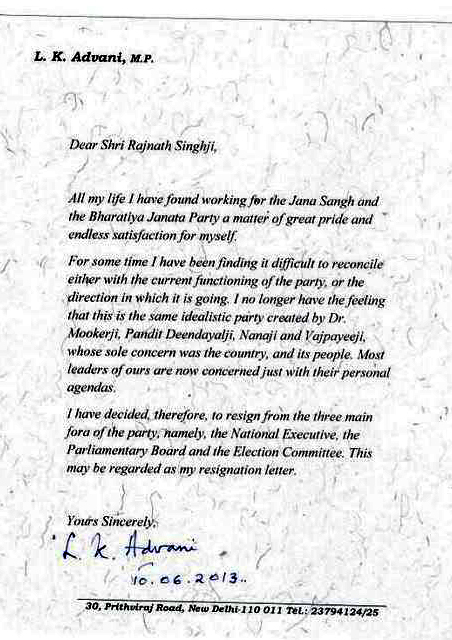 L. K. Advani, M.P.
Dear Shri Rajnath Singhji,
All my life I have found working for the Jana Sangh and
the Bharatiya Janata Party a matter of great pride and
endless satisfaction for myself.
For some time I have been finding it difficult to reconcile
either with the current functioning of the party, or the
direction in which it is going. I no longer have the feeling
that this is the same idealistic party created by Dr.
Mookerji, Pandit Deendayalji, Nanaji and Vajpayeeji,
whose sole concern was the country, and its people. Most
leaders of ours are now concerned just with their personal
agendas.
I have decided, therefore, to resign from the three main
fora of the party, namely, the National Executive, the
Parliamentary Board and the Election Committee. This
may be regarded as my resignation letter.
Yours Sincerely,
L. K. Advani
10.06.2013..
30, Prithviraj Road, New Delhi-110 011 Tel.: 23794124/25